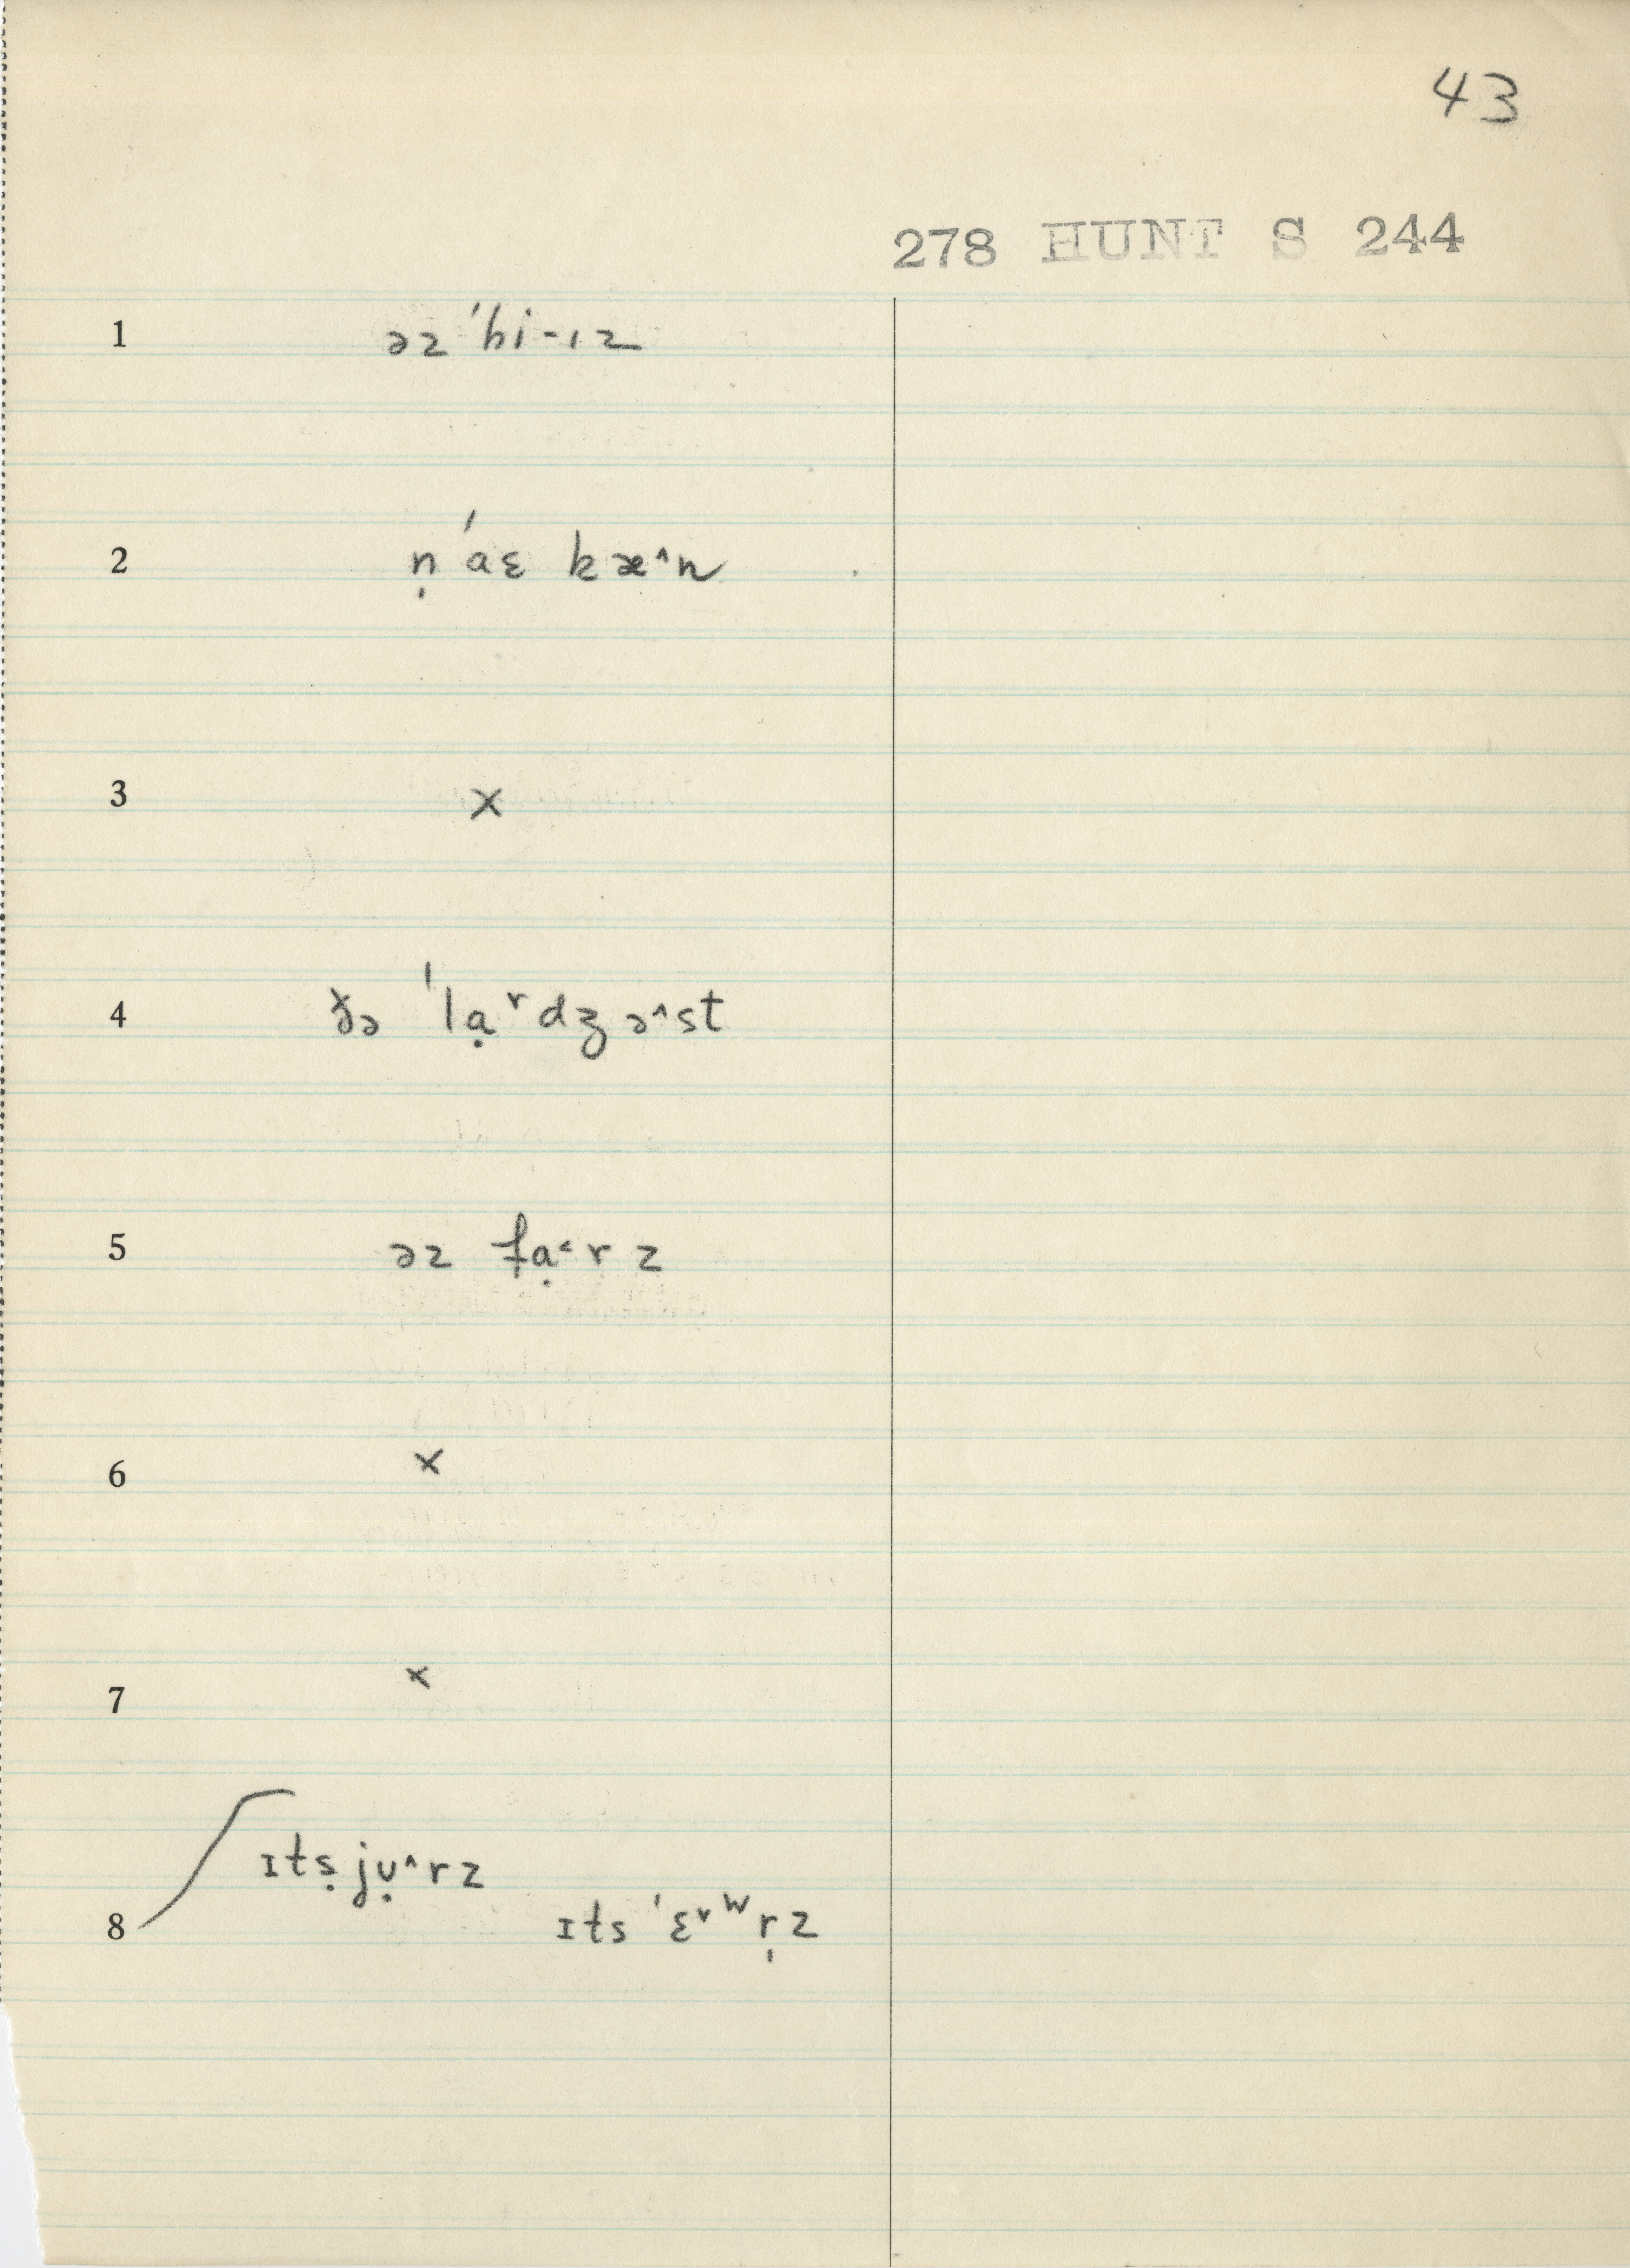 43
278 HUNT S 244
1 əz ˈhi-ɪz
2 n̩ ˈaɛ kæ^n
3 x
4 ðə ˈlạ˅dʒə^st
5 əz fạ˂rz
6 x
7 x
8 ɪtṣjụ^rz
ɪts ˈɛ˅ʷr̩z